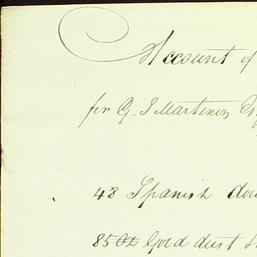 Account of
for G. I Martinon Es
48 Spanish dou
85 Oz Gold dust